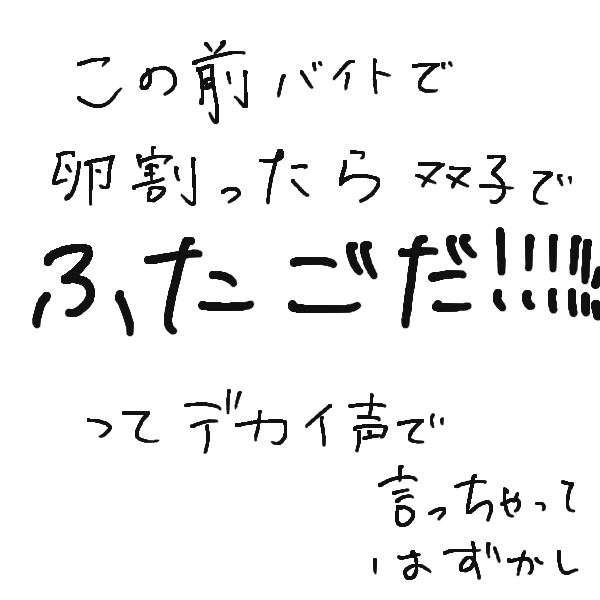 この前バイトで
卵割ったら双子で
ふたごだ!!!!!!
ってデカイ声で
言っちゃって
はずかし